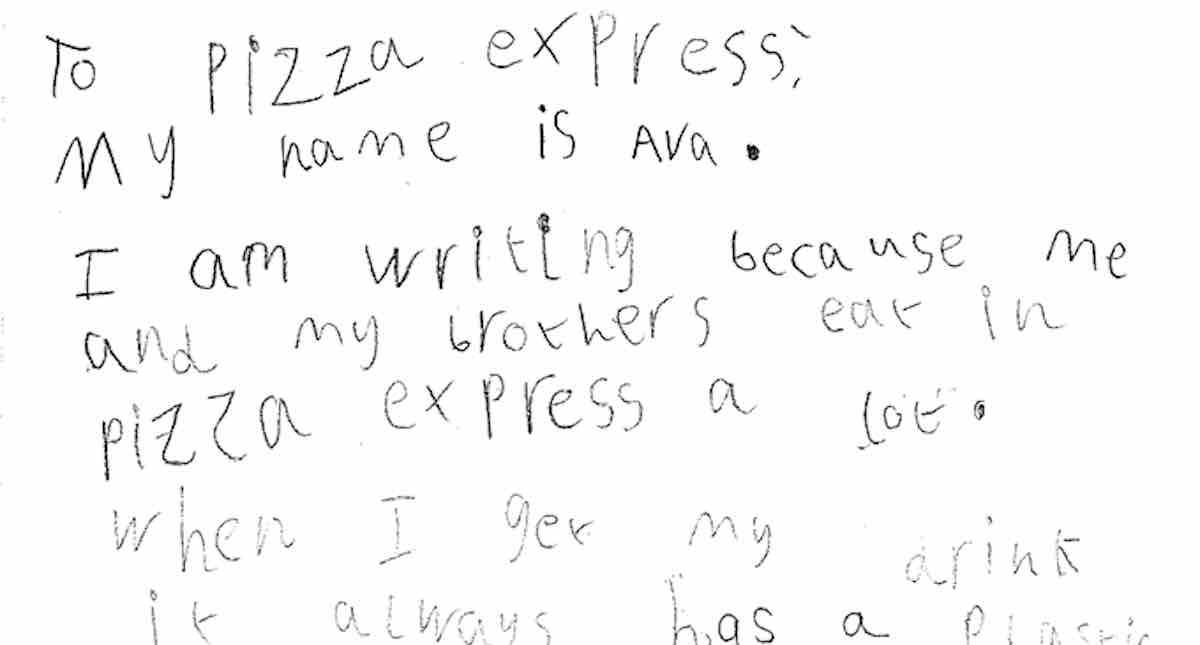 To pizza express,
My name is Ava.
I am writing because me
and my brothers eat in
pizza express a lot.
when I get my drink
it always has a plastic